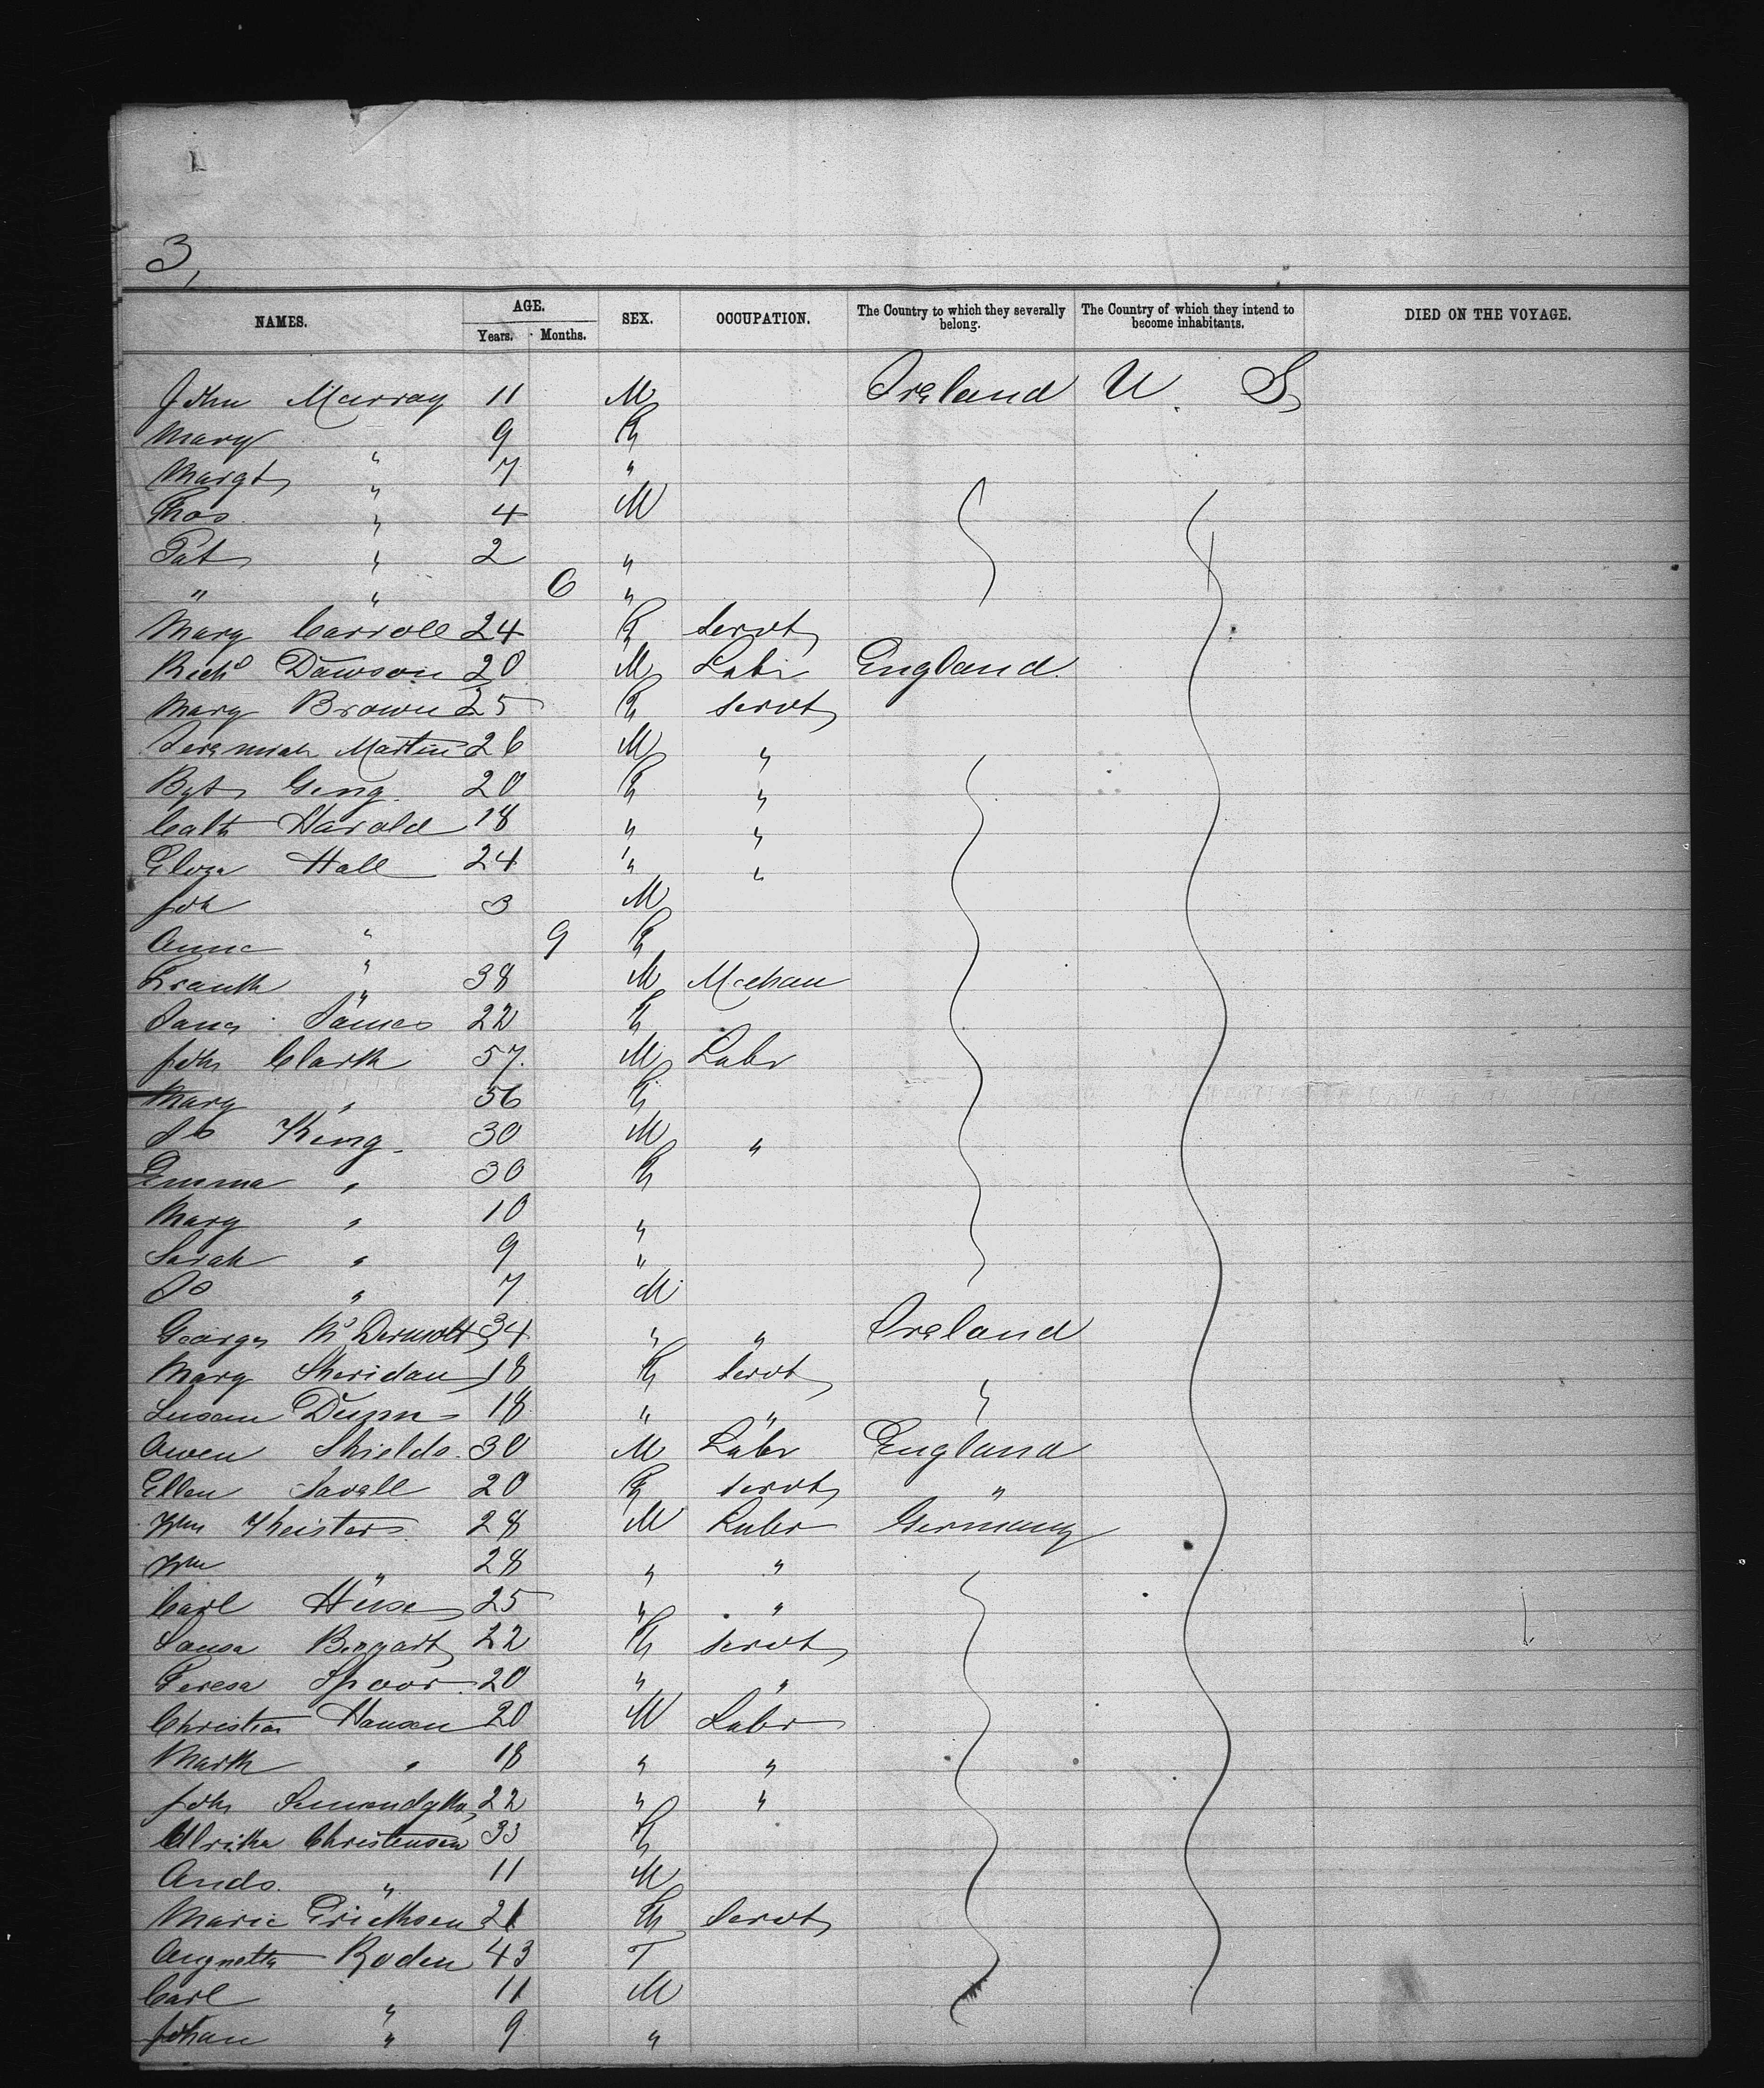 3,
NAMES. AGE. SEX. OCCUPATION. The Country to which they severally belong. The Country of which they intend to become inhabitants. DIED ON THE VOYAGE.
Years. Months.
John Murray 11 M Ireland U. S
Mary " 9 F
Margt " 7 "
Thos " 4 M
Pat " 2 "
" " 6 "
Mary Carroll 24 F Servt
Richd Dawson 20 M Labr England
Mary Brown 25 F servt
Jeremiah Martin 26 M "
Bgt Geng 20 F "
Cath Harold 18 " "
Eliza Hall 24 " "
Joh " 3 M
Anne " 9 F
Frank " 38 M Mechan
Jane James 22 F
John Clark 57 M Labr
Mary " 56 F
Js King 30 M "
Emma " 30 F
Mary " 10 "
Sarah " 9 "
Js " 7 M
George McDermott 34 " " Ireland
Mary Sheridan 18 F Servt
Susan Dunn 18 " " "
Owen Shields 30 M Labr England
Ellen Savall 20 F servt "
Wm Keisters 28 M Labr Germany
Wm " 28 " "
Carl 25 " "
Bogart 22 F servt
Teresa Spoor 20 " "
Christian Hansen 20 M Labr
Mark " 18 " "
John 22 " "
Ulrika Christensen 33 F
Ands " 11 M
Marie Erickson 21 F Servt
Augnetta Roden 43 F
Carl " 11 M
Johan " 9 "